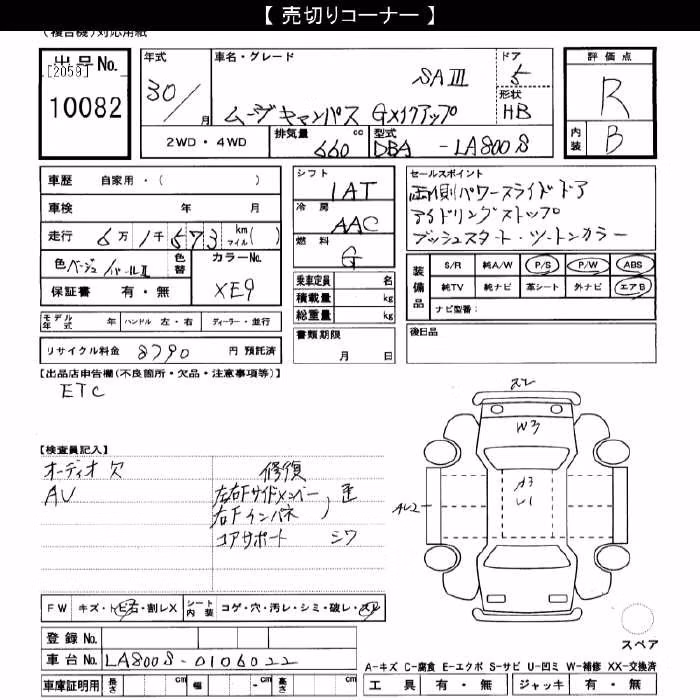 【 売切りコーナー 】
(複合機)対応用紙
出品No.
[2059]
10082
年式
30/ 月
車名・グレード
SAⅢ
ムーヴキャンバス Gメイクアップ
ドア
5
形状
HB
2WD・4WD
排気量
660 cc
型式
DBA - LA800S
評価点
R
内装
B
車歴 自家用・( )
車検 年 月
走行 6万1千573 km マイル( )
色 ベージュ/パールⅡ
色替
カラーNo.
XE9
保証書 有・無
モデル年式 年 ハンドル 左・右 ディーラー・並行
リサイクル料金 8790 円 預託済
シフト
IAT
冷房
AAC
燃料
G
乗車定員 名
積載量 kg
総重量 kg
書類期限
月 日
セールスポイント
両側パワースライドドア
アイドリングストップ
プッシュスタート・ツートンカラー
装備品
S/R 純A/W P/S P/W ABS
純TV 純ナビ 革シート 外ナビ エアB
ナビ型番:
後日品
【出品店申告欄(不良箇所・欠品・注意事項等)】
ETC
【検査員記入】
オーディオ欠
AV
修復
左右Fサイドメンバー
右Fインパネ
コアサポート シワ
W3
A3
U1
AU2
FW キズ・トビ石・割レX
シート内装 コゲ・穴・汚レ・シミ・破レ・スレ
登録No.
車台No. LA800S-0106022
車庫証明用 長さ cm 幅 cm 高さ cm
スペア
A-キズ C-腐食 E-エクボ S-サビ U-凹ミ W-補修 XX-交換済
工具 有・無 ジャッキ 有・無